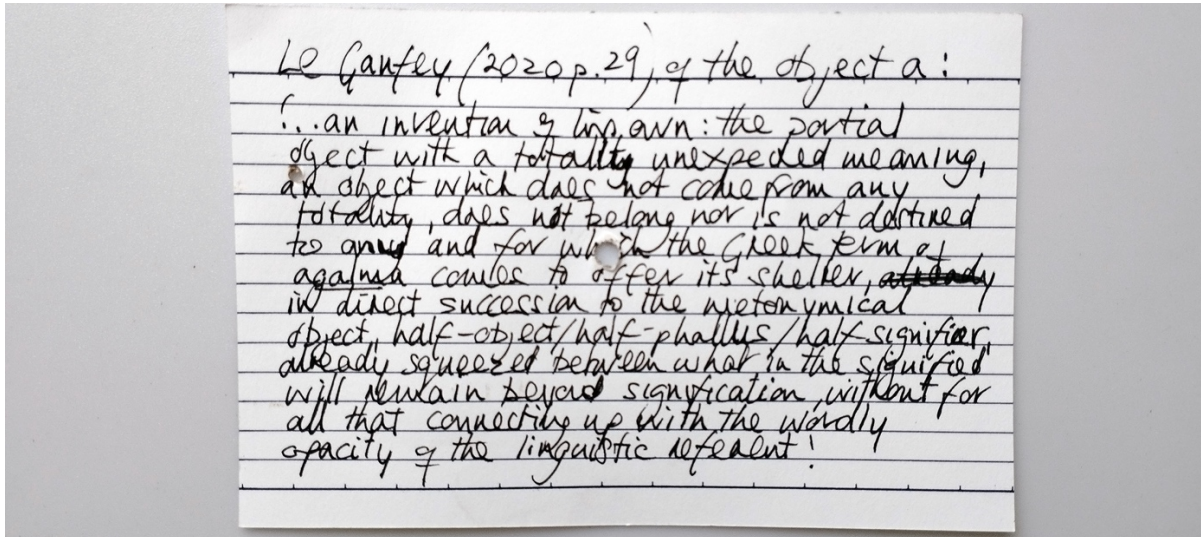 Le Gaufey (2020 p. 29), of the object a:
'...an invention of his own: the partial
object with a totally unexpected meaning,
an object which does not come from any
totality, does not belong nor is not destined
to any and for which the Greek term of
agalma comes to offer its shelter, already
in direct succession to the metonymical
object, half-object/half-phallus/half-signifier,
already squeezed between what in the signified
will remain beyond signification, without for
all that connecting up with the wordly
opacity of the linguistic referent'